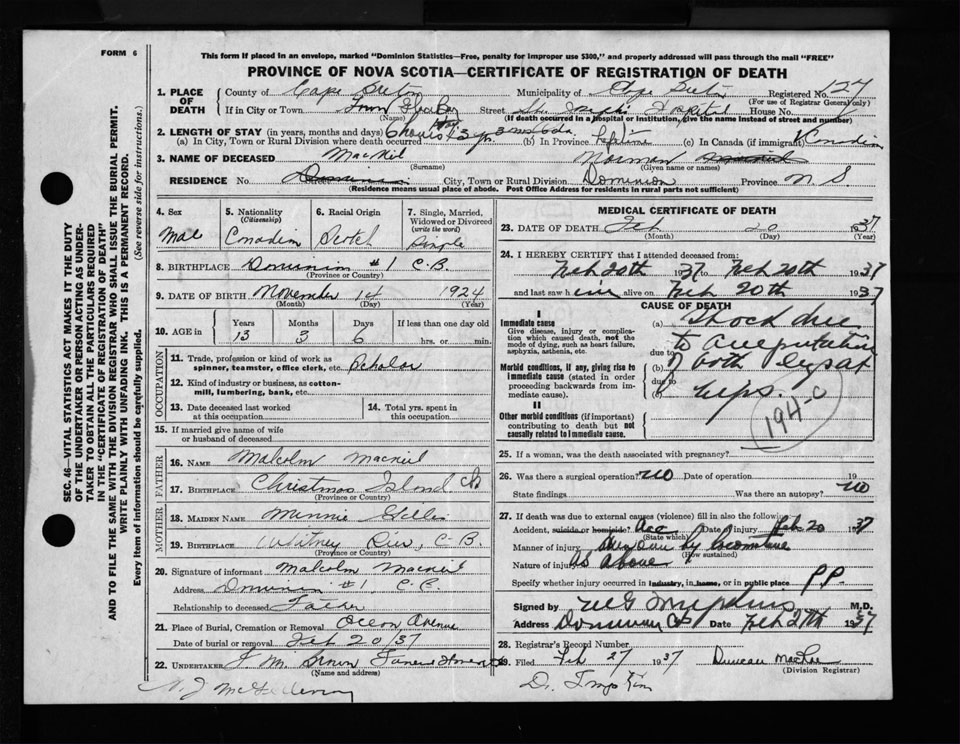 FORM 6
This form if placed in an envelope, marked "Dominion Statistics—Free, penalty for improper use $300," and properly addressed will pass through the mail "FREE"
PROVINCE OF NOVA SCOTIA—CERTIFICATE OF REGISTRATION OF DEATH
1. PLACE OF DEATH
County of Cape Breton Municipality of Cape Breton Registered No. 127
(For use of Registrar General only)
If in City or Town Town Glace Bay Street St. Josephs Hospital House No.
(Name) (If death occurred in a hospital or institution, give the name instead of street and number)
2. LENGTH OF STAY (in years, months and days)
(a) In City, Town or Rural Division where death occurred 6 hours (b) In Province lifetime (c) In Canada (if immigrant) Canadian
3. NAME OF DECEASED MacNeil Norman
(Surname) (Given name or names)
RESIDENCE No. City, Town or Rural Division Dominion Province N. S.
(Residence means usual place of abode. Post Office Address for residents in rural parts not sufficient)
SEC. 46—VITAL STATISTICS ACT MAKES IT THE DUTY OF THE UNDERTAKER OR PERSON ACTING AS UNDERTAKER TO OBTAIN ALL THE PARTICULARS REQUIRED IN THE "CERTIFICATE OF REGISTRATION OF DEATH" AND TO FILE THE SAME WITH THE DIVISION REGISTRAR WHO SHALL ISSUE THE BURIAL PERMIT.
WRITE PLAINLY WITH UNFADING INK. THIS IS A PERMANENT RECORD.
Every item of information should be carefully supplied. (See reverse side for instructions.)
4. Sex
Male
5. Nationality
(Citizenship)
Canadian
6. Racial Origin
Scotch
7. Single, Married, Widowed or Divorced
(write the word)
Single
8. BIRTHPLACE Dominion #1 C.B.
(Province or Country)
9. DATE OF BIRTH November 14 1924
(Month) (Day) (Year)
10. AGE in Years Months Days If less than one day old
13 3 6 hrs. or min.
OCCUPATION
11. Trade, profession or kind of work as spinner, teamster, office clerk, etc. Scholar
12. Kind of industry or business, as cotton-mill, lumbering, bank, etc.
13. Date deceased last worked at this occupation
14. Total yrs. spent in this occupation
15. If married give name of wife or husband of deceased
FATHER
16. NAME Malcolm MacNeil
17. BIRTHPLACE Christmas Island CB
(Province or Country)
MOTHER
18. MAIDEN NAME Minnie Gillis
19. BIRTHPLACE Whitney Pier, C-B.
(Province or Country)
20. Signature of informant Malcolm MacNeil
Address Dominion #1 C.B.
Relationship to deceased Father
21. Place of Burial, Cremation or Removal Ocean Avenue
Date of burial or removal Feb 20/37
22. UNDERTAKER J M. Brown Funeral Home
(Name and address)
MEDICAL CERTIFICATE OF DEATH
23. DATE OF DEATH Feb 20 1937
(Month) (Day) (Year)
24. I HEREBY CERTIFY that I attended deceased from:
Feb 20th 1937 to Feb 20th 1937
and last saw him alive on Feb 20th 1937
CAUSE OF DEATH
I
Immediate cause
Give disease, injury, or complication which caused death, not the mode of dying, such as heart failure, asphyxia, asthenia, etc.
Morbid conditions, if any, giving rise to immediate cause (stated in order proceeding backwards from immediate cause).
II
Other morbid conditions (if important) contributing to death but not causally related to immediate cause.
(a) Shock due
due to to amputation
(b) of both legs at
due to
hips.
194-c
25. If a woman, was the death associated with pregnancy?
26. Was there a surgical operation? no Date of operation 19
State findings Was there an autopsy? no
27. If death was due to external causes (violence) fill in also the following:
Accident, suicide or homicide? Acc Date of injury Feb 20 1937
(State which)
Manner of injury run over by locomotive
(How sustained)
Nature of injury As above
Specify whether injury occurred in industry, in home, or in public place P.P.
Signed by M.D.
Address Date Feb 27th 1937
28. Registrar's Record Number
29. Filed Feb 27 1937 Duncan MacRae
(Division Registrar)